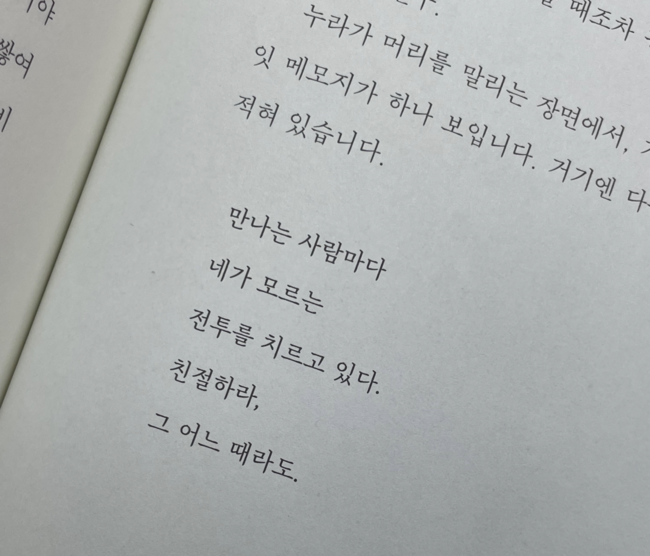 쌓여
때조차
누라가 머리를 말리는 장면에서,
잇 메모지가 하나 보입니다. 거기엔
적혀 있습니다.
만나는 사람마다
네가 모르는
전투를 치르고 있다.
친절하라,
그 어느 때라도.